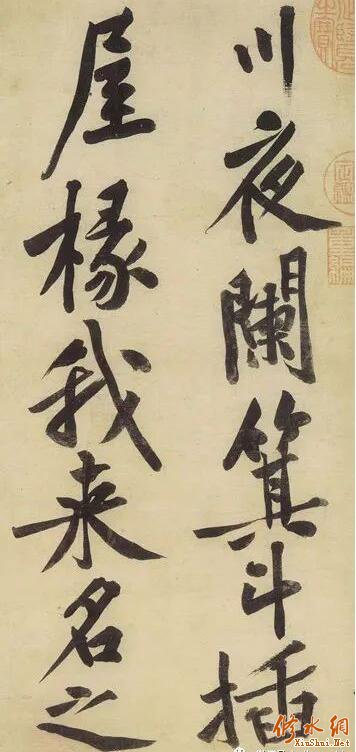 川夜闌箕斗插
屋椽我来名之
修水網
XiuShui.Net